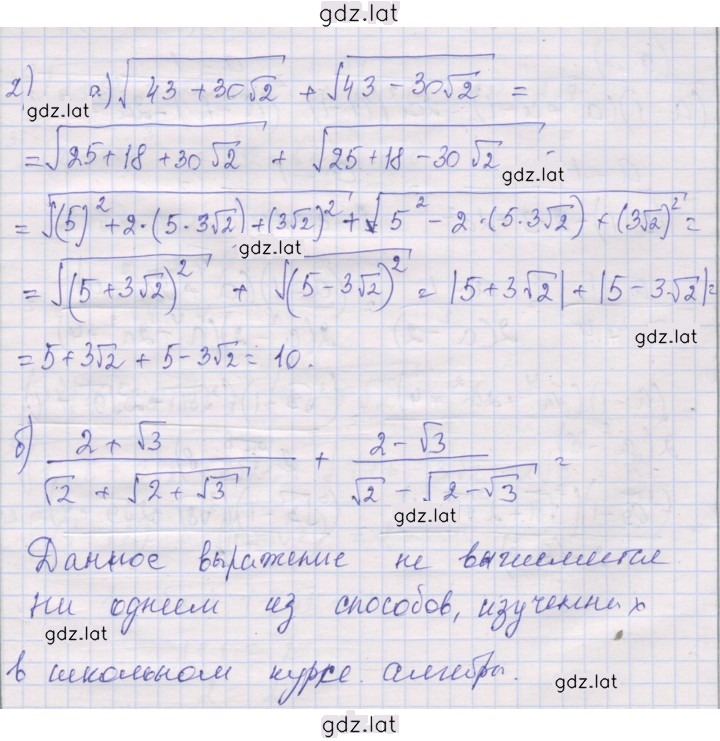 gdz.lat
2) а.) √(43 + 30√2) + √(43 − 30√2) =
gdz.lat
= √(25 + 18 + 30√2) + √(25 + 18 − 30√2) =
gdz.lat
= √((5)² + 2·(5·3√2) + (3√2)²) + √(5² − 2·(5·3√2) + (3√2)²) =
gdz.lat
= √((5 + 3√2)²) + √((5 − 3√2)²) = |5 + 3√2| + |5 − 3√2| =
gdz.lat
= 5 + 3√2 + 5 − 3√2 = 10.
б) (2 + √3)/(√2 + √(2 + √3)) + (2 − √3)/(√2 − √(2 − √3)) =
gdz.lat
Данное выражение не вычисляется
ни одним из способов, изученных
gdz.lat
в школьном курсе алгебры.
gdz.lat
gdz.lat